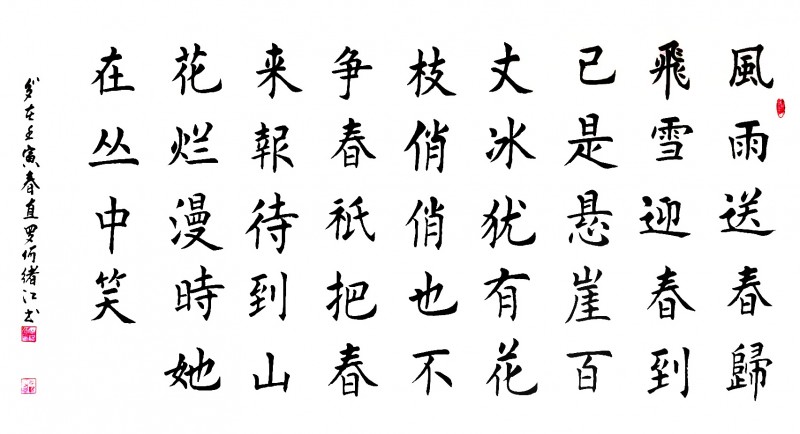 風雨送春歸
飛雪迎春到
已是悬崖百
丈冰犹有花
枝俏俏也不
争春祇把春
来報待到山
花烂漫時她
在丛中笑
岁在壬寅春直罗何绪江书